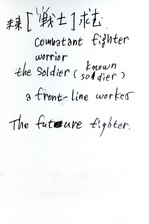 未来[“戦士]求む
combatant fighter
worrior
the soldier (known soldier)
a front-line worker
The future fighter.